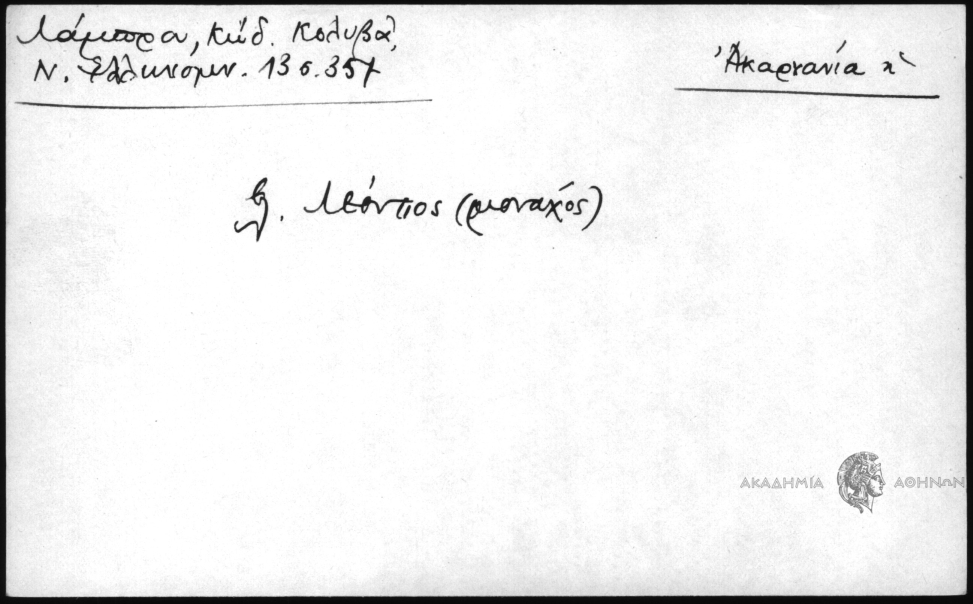 Λάμπρου, Κώδ. Κολυβᾶ,
Ν. Ἑλληνομν. 13 σ. 357
Ἀκαρνανία
Λεόντιος (μοναχός)
ΑΚΑΔΗΜΙΑ ΑΘΗΝΩΝ